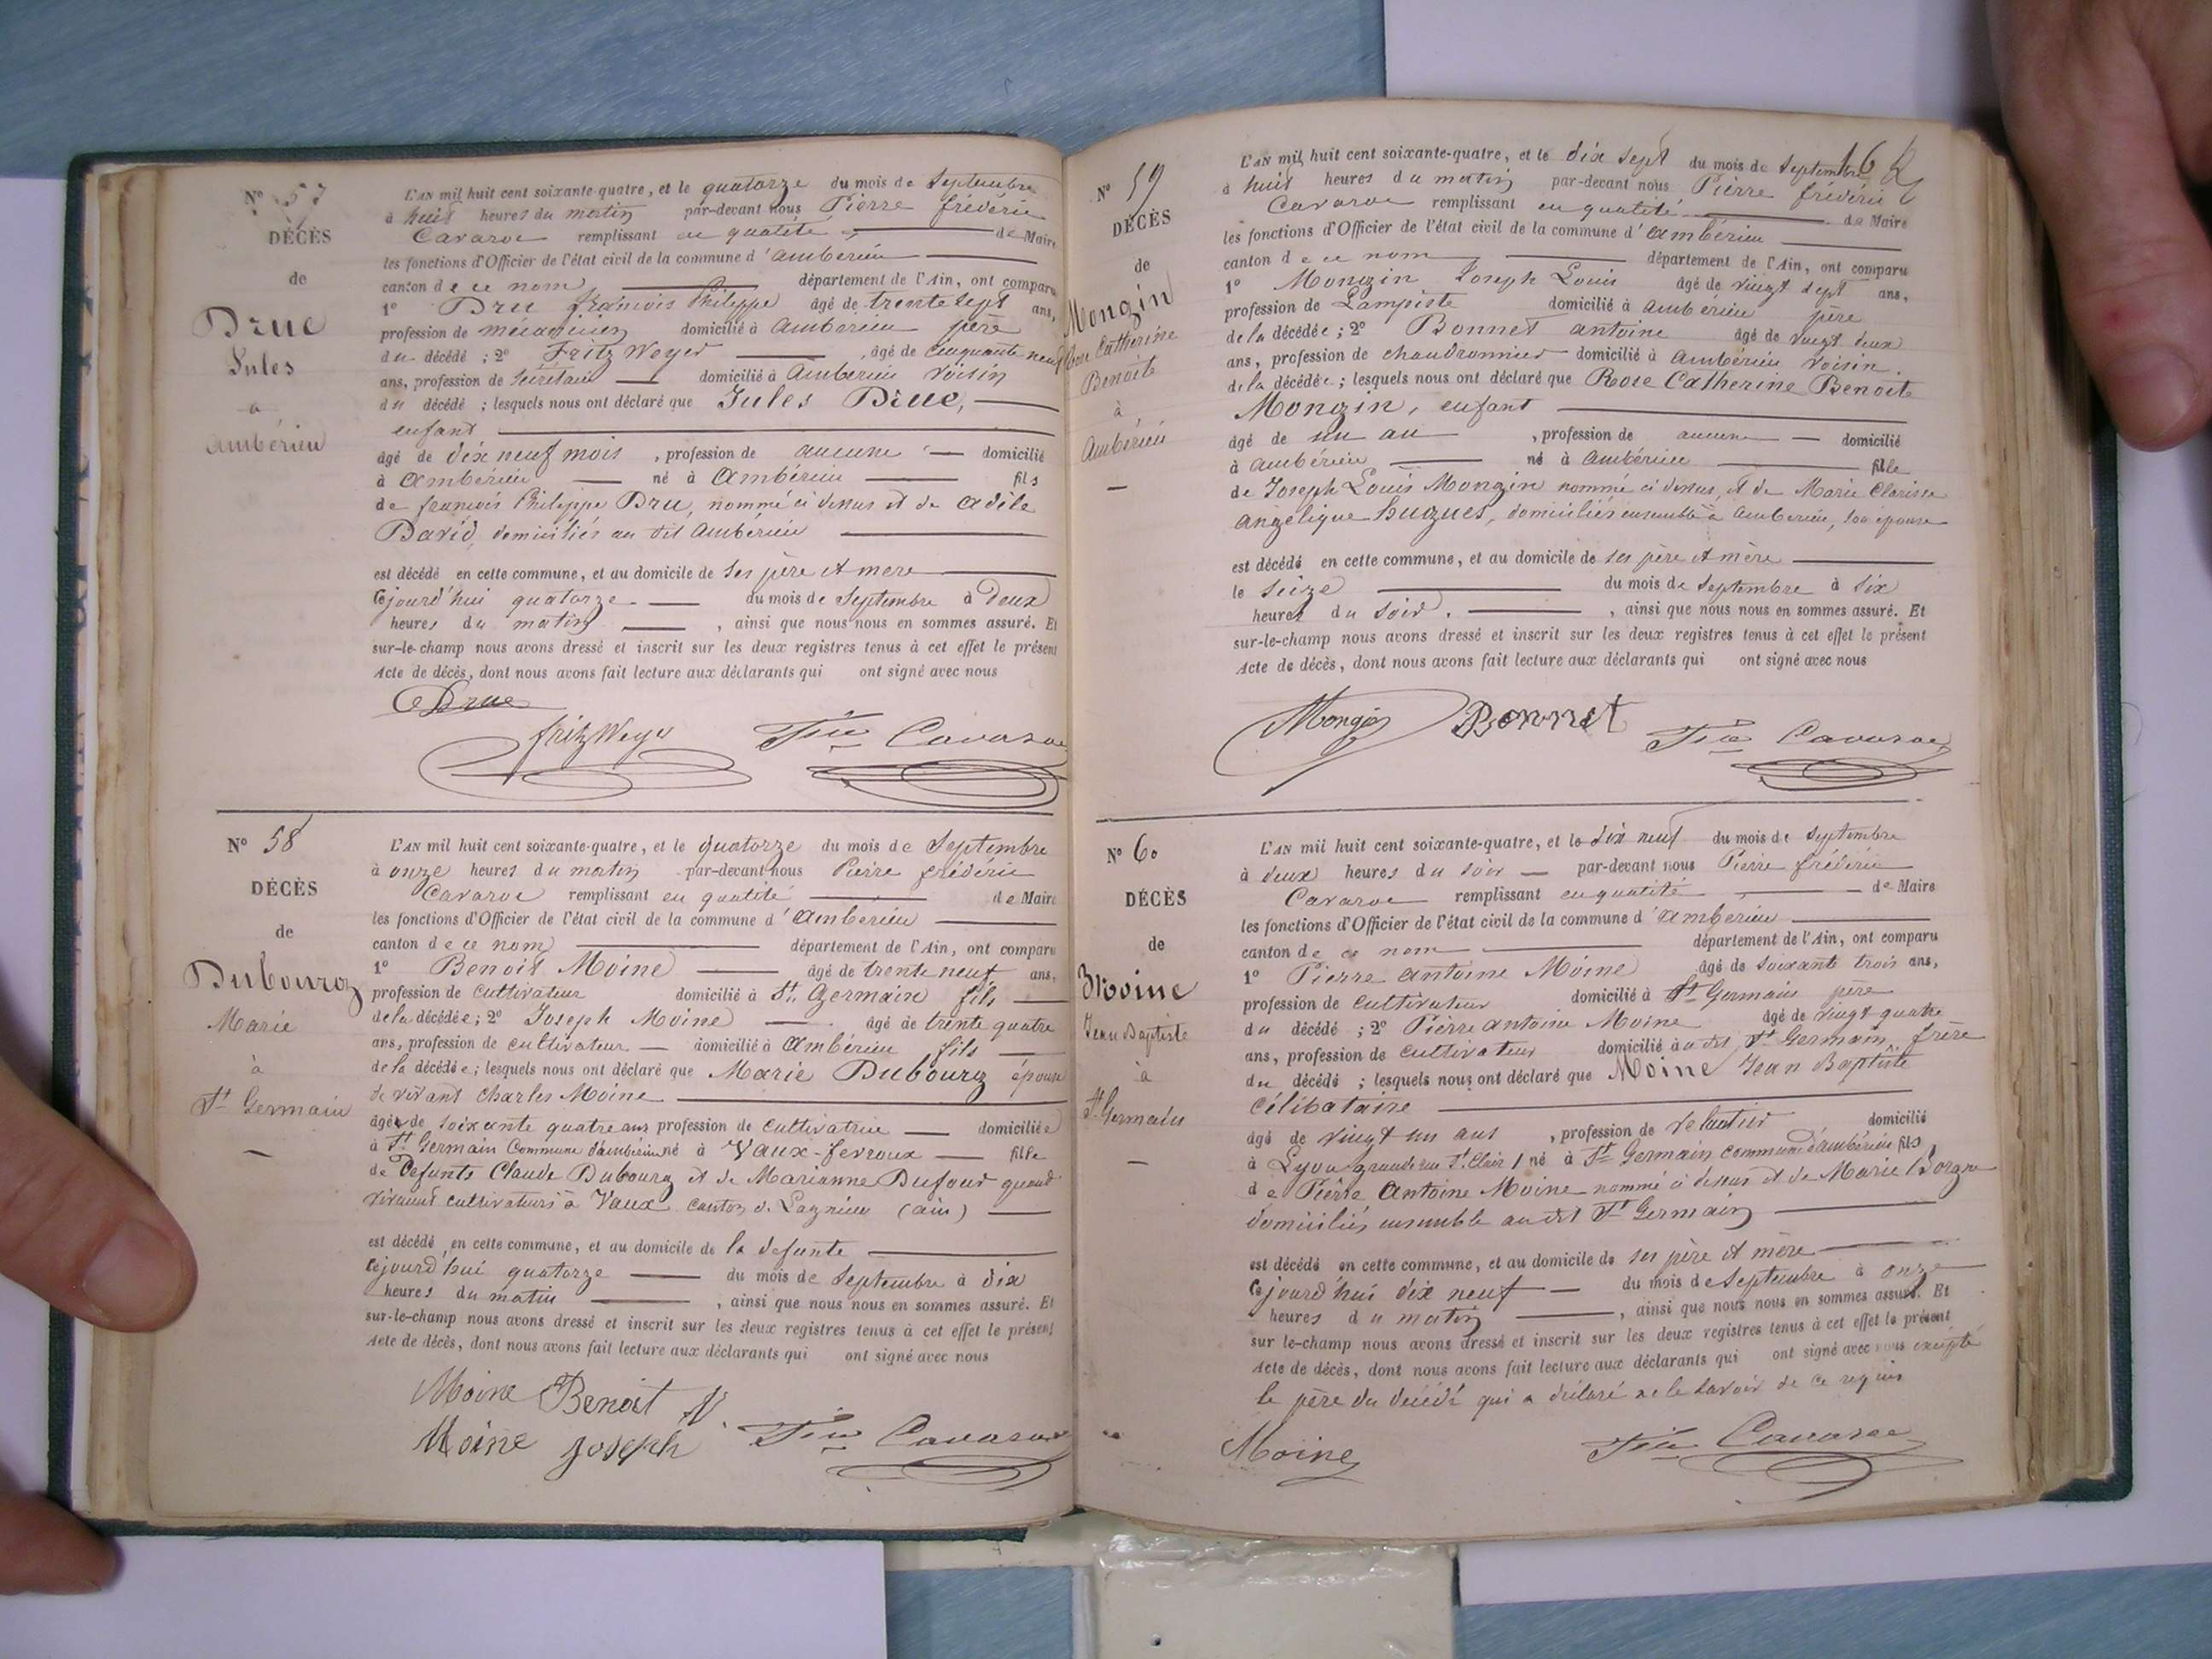 N° 57
DÉCÈS
de
Drue
Jules
à
Ambérieu
L'AN mil huit cent soixante-quatre, et le quatorze du mois de Septembre
à huit heures du matin par-devant nous Pierre frédéric
Cavaroc remplissant en qualité de Maire
les fonctions d'Officier de l'état civil de la commune d'Ambérieu
canton de ce nom département de l'Ain, ont comparu
1° Dru françois Philippe âgé de trente sept ans,
profession de mécanicien domicilié à Ambérieu père
du décédé ; 2° Fritz Weyer , âgé de cinquante neuf
ans, profession de Secrétaire domicilié à Ambérieu voisin
du décédé ; lesquels nous ont déclaré que Jules Drue,
enfant
âgé de dix neuf mois , profession de aucune domicilié
à Ambérieu né à Ambérieu fils
de françois Philippe Dru, nommé ci dessus et de Adèle
David, domiciliés au dit Ambérieu
est décédé en cette commune, et au domicile de ses père et mère
Cejourd'hui quatorze du mois de Septembre à Deux
heures du matin , ainsi que nous nous en sommes assuré. Et
sur-le-champ nous avons dressé et inscrit sur les deux registres tenus à cet effet le présent
Acte de décès, dont nous avons fait lecture aux déclarants qui ont signé avec nous
Drue
fritz Weyer Cavaroc
N° 58
DÉCÈS
de
Dubourg
Marie
à
St Germain
L'AN mil huit cent soixante-quatre, et le quatorze du mois de Septembre
à onze heures du matin par-devant nous Pierre frédéric
Cavaroc remplissant en qualité de Maire
les fonctions d'Officier de l'état civil de la commune d'Ambérieu
canton de ce nom département de l'Ain, ont comparu
1° Benoit Moine âgé de trente neuf ans,
profession de cultivateur domicilié à St. Germain fils
de la décédée ; 2° Joseph Moine âgé de trente quatre
ans, profession de cultivateur domicilié à Ambérieu fils
de la décédée ; lesquels nous ont déclaré que Marie Dubourg épouse
de vivant Charles Moine
âgée de soixante quatre ans profession de cultivatrice domiciliée
à St Germain Commune d'ambérieu né à Vaux-fevroux fille
de Defunts Claude Dubourg et de Marianne Dufour quand
vivaient cultivateurs à Vaux canton de Lagnieu (ain)
est décédé en cette commune, et au domicile de la defunte
Cejourd'hui quatorze du mois de Septembre à dix
heures du matin , ainsi que nous nous en sommes assuré. Et
sur-le-champ nous avons dressé et inscrit sur les deux registres tenus à cet effet le présent
Acte de décès, dont nous avons fait lecture aux déclarants qui ont signé avec nous
Moine Benoit
Moine Joseph Cavaroc
162
N° 59
DÉCÈS
de
Mongin
Rose Catherine
Benoite
à
Ambérieu
L'AN mil huit cent soixante-quatre, et le dix sept du mois de Septembre
à huit heures du matin par-devant nous Pierre frédéric
Cavaroc remplissant en qualité de Maire
les fonctions d'Officier de l'état civil de la commune d'Ambérieu
canton de ce nom département de l'Ain, ont comparu
1° Mongin Joseph Louis âgé de vingt sept ans,
profession de Lampiste domicilié à Ambérieu père
de la décédée ; 2° Bonnet antoine âgé de vingt deux
ans, profession de chaudronnier domicilié à Ambérieu voisin
de la décédée ; lesquels nous ont déclaré que Rose Catherine Benoite
Mongin, enfant
âgé de un an , profession de aucune domicilié
à Ambérieu né à Ambérieu fille
de Joseph Louis Mongin nommé ci dessus, et de Marie Clarisse
angélique hugues, domiciliés ensemble à Ambérieu, son épouse
est décédé en cette commune, et au domicile de ses père et mère
le Seize du mois de Septembre à Six
heures du soir. , ainsi que nous nous en sommes assuré. Et
sur-le-champ nous avons dressé et inscrit sur les deux registres tenus à cet effet le présent
Acte de décès, dont nous avons fait lecture aux déclarants qui ont signé avec nous
Mongin Bonnet Cavaroc
N° 60
DÉCÈS
de
Moine
Jean Baptiste
à
St Germain
L'AN mil huit cent soixante-quatre, et le dix neuf du mois de Septembre
à deux heures du soir par-devant nous Pierre frédéric
Cavaroc remplissant en qualité de Maire
les fonctions d'Officier de l'état civil de la commune d'Ambérieu
canton de ce nom département de l'Ain, ont comparu
1° Pierre Antoine Moine âgé de soixante trois ans,
profession de cultivateur domicilié à St Germain père
du décédé ; 2° Pierre antoine Moine âgé de vingt quatre
ans, profession de cultivateur domicilié au dit St Germain frère
du décédé ; lesquels nous ont déclaré que Moine Jean Baptiste
Célibataire
âgé de vingt un ans , profession de veloutier domicilié
à Lyon grande rue St. Clair 1 né à St Germain commune d'ambérieu fils
de Pierre Antoine Moine nommé ci dessus et de Marie Borgne
domiciliés ensemble au dit St Germain
est décédé en cette commune, et au domicile de ses père et mère
Cejourd'hui dix neuf du mois de Septembre à onze
heures du matin , ainsi que nous nous en sommes assuré. Et
sur le-champ nous avons dressé et inscrit sur les deux registres tenus à cet effet le présent
Acte de décès, dont nous avons fait lecture aux déclarants qui ont signé avec nous excepté
le père du décédé qui a déclaré ne le savoir de ce requis
Moine Cavaroc